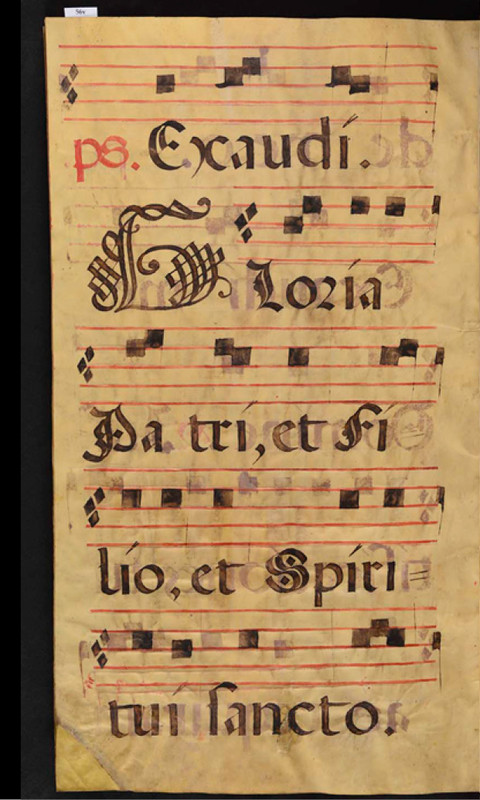 ps. Excaudi.
Gloria
Pa tri, et Fi
lio, et Spiri=
tui sancto.